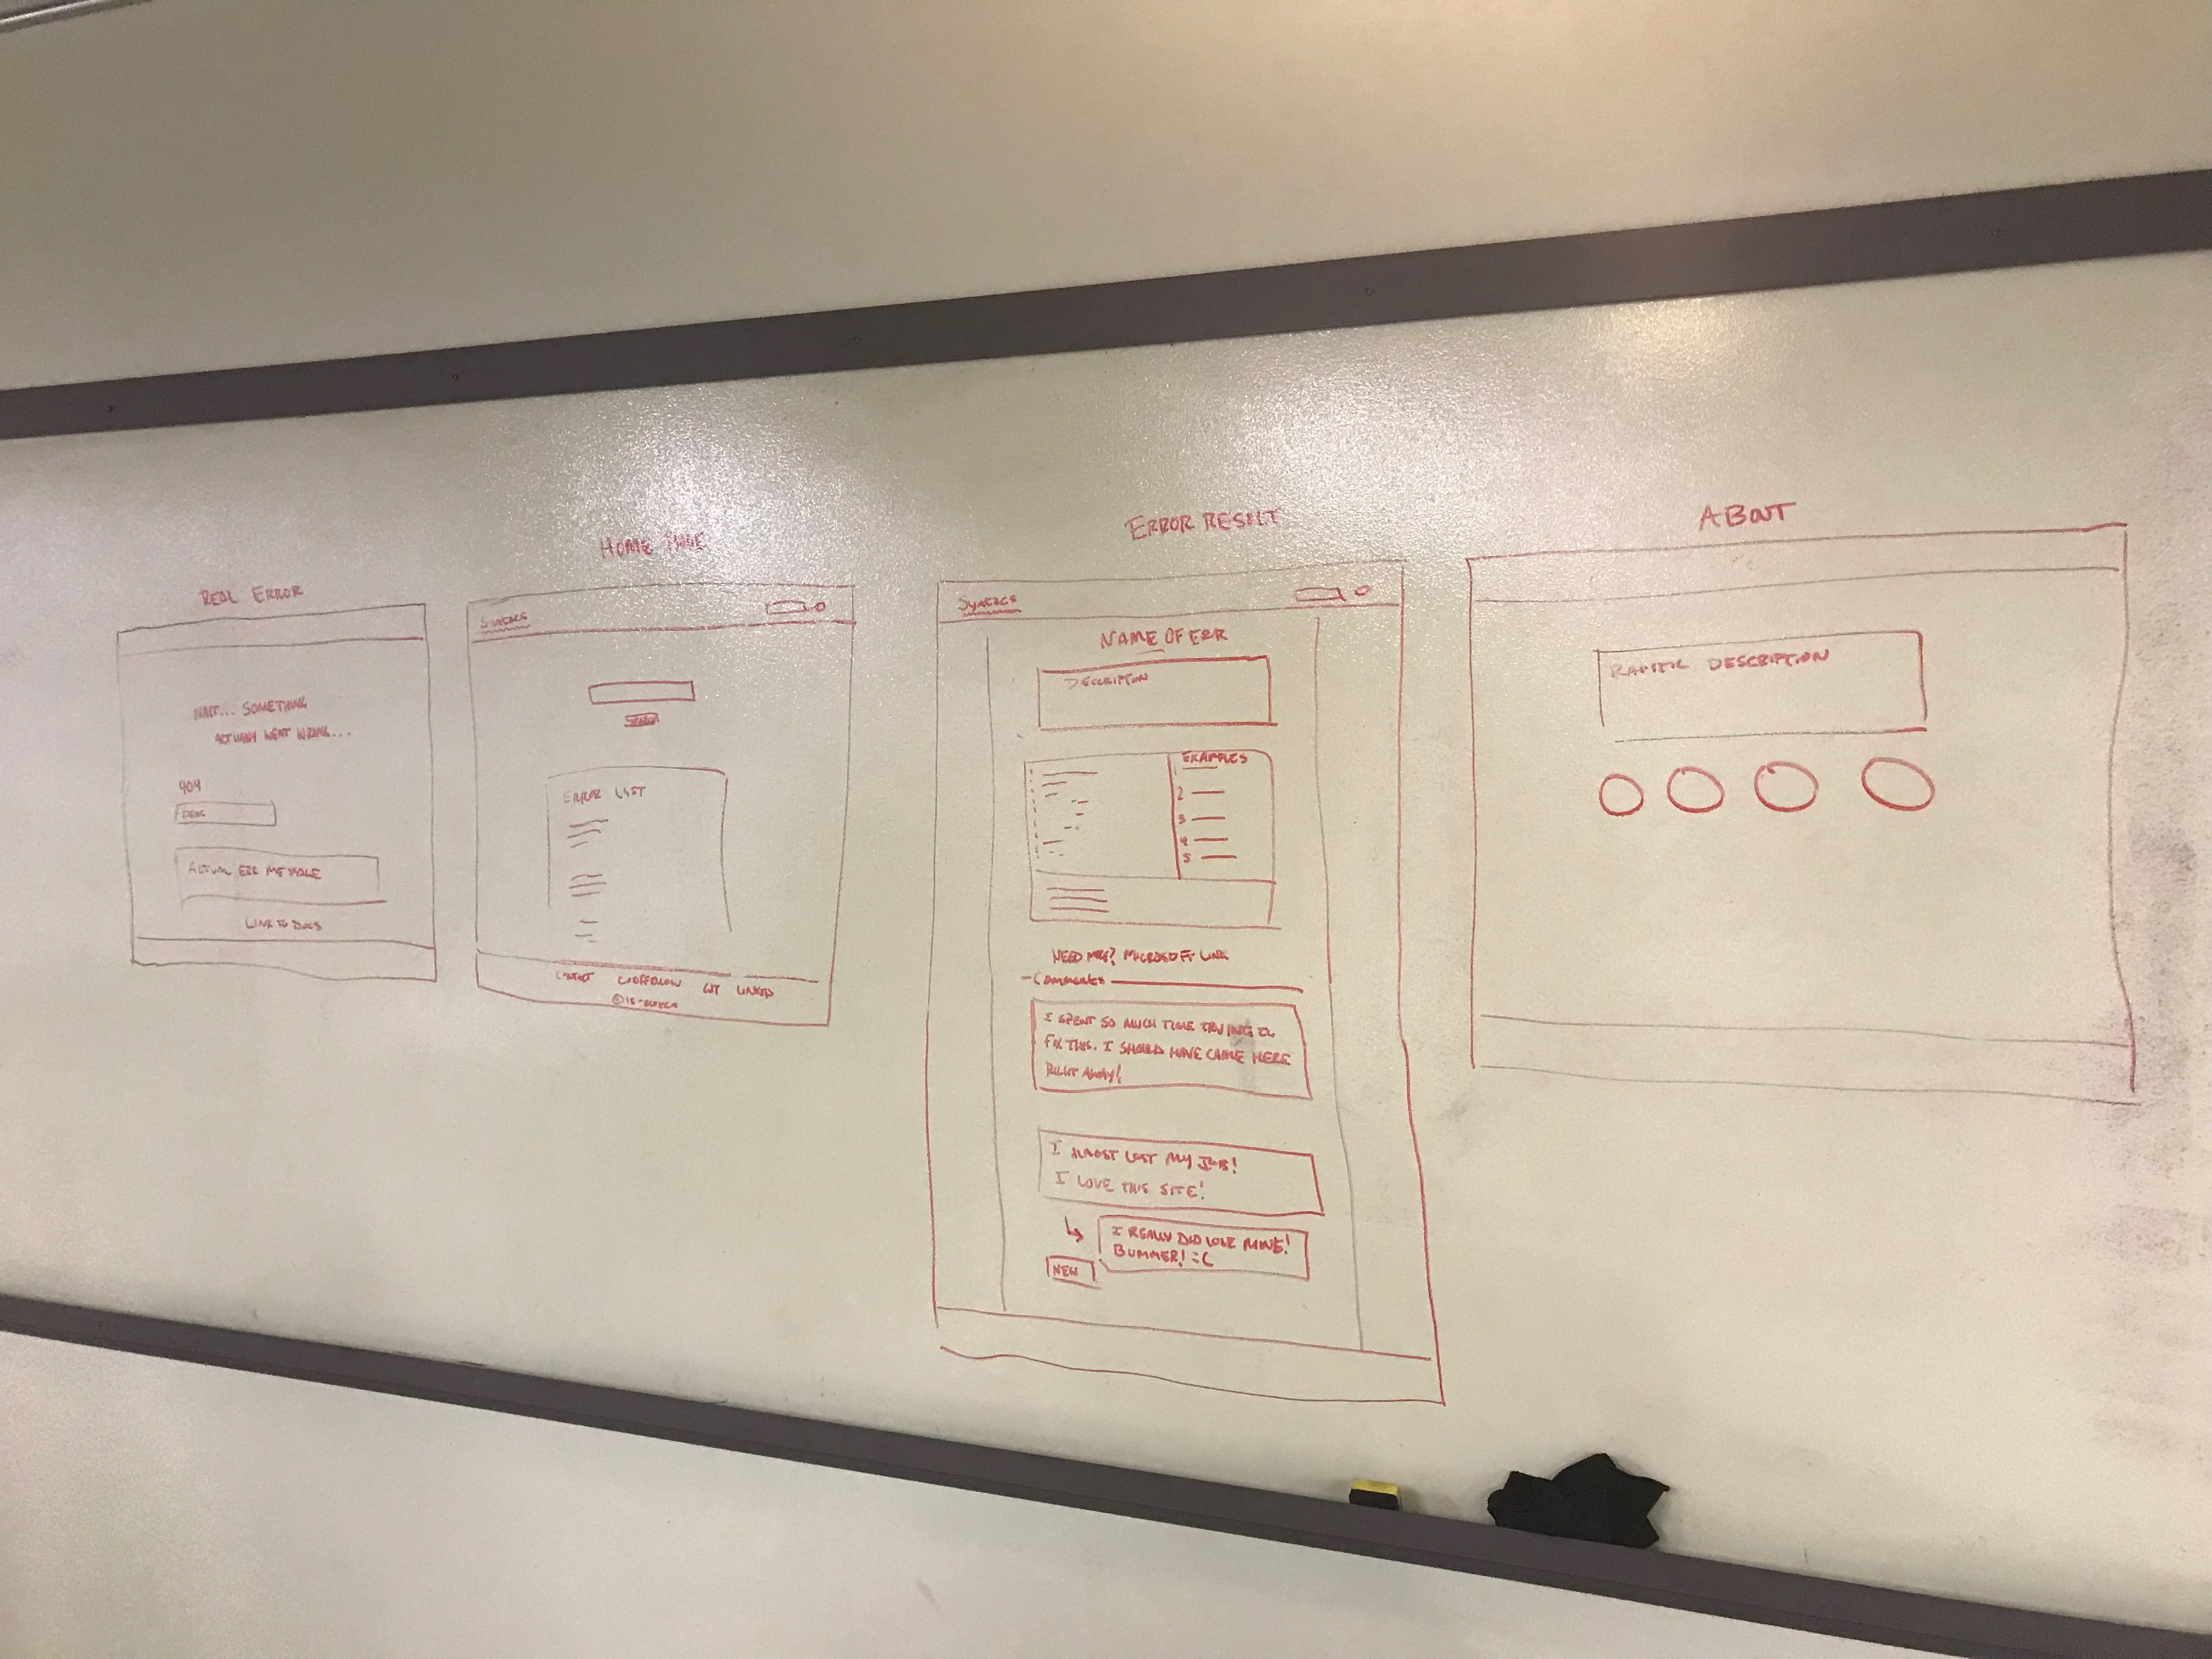 REAL ERROR
WAIT... SOMETHING
ACTUALLY WENT WRONG...
404
DESC
ACTUAL ERR MESSAGE
LINK TO DOCS
HOME PAGE
SYNTACS
SEARCH
ERROR LIST
CONTACT CODEFELLOW GIT LINKED
ERROR RESULT
SYNTACS
NAME OF ERR
DESCRIPTION
EXAMPLES
1
2
3
4
5
NEED MORE? MICROSOFT LINK
COMMENTS
I SPENT SO MUCH TIME TRYING TO
FIX THIS. I SHOULD HAVE CAME HERE
RIGHT AWAY!
I ALMOST LOST MY JOB!
I LOVE THIS SITE!
I REALLY DID LOSE MINE!
BUMMER! :(
NEW
ABOUT
DESCRIPTION